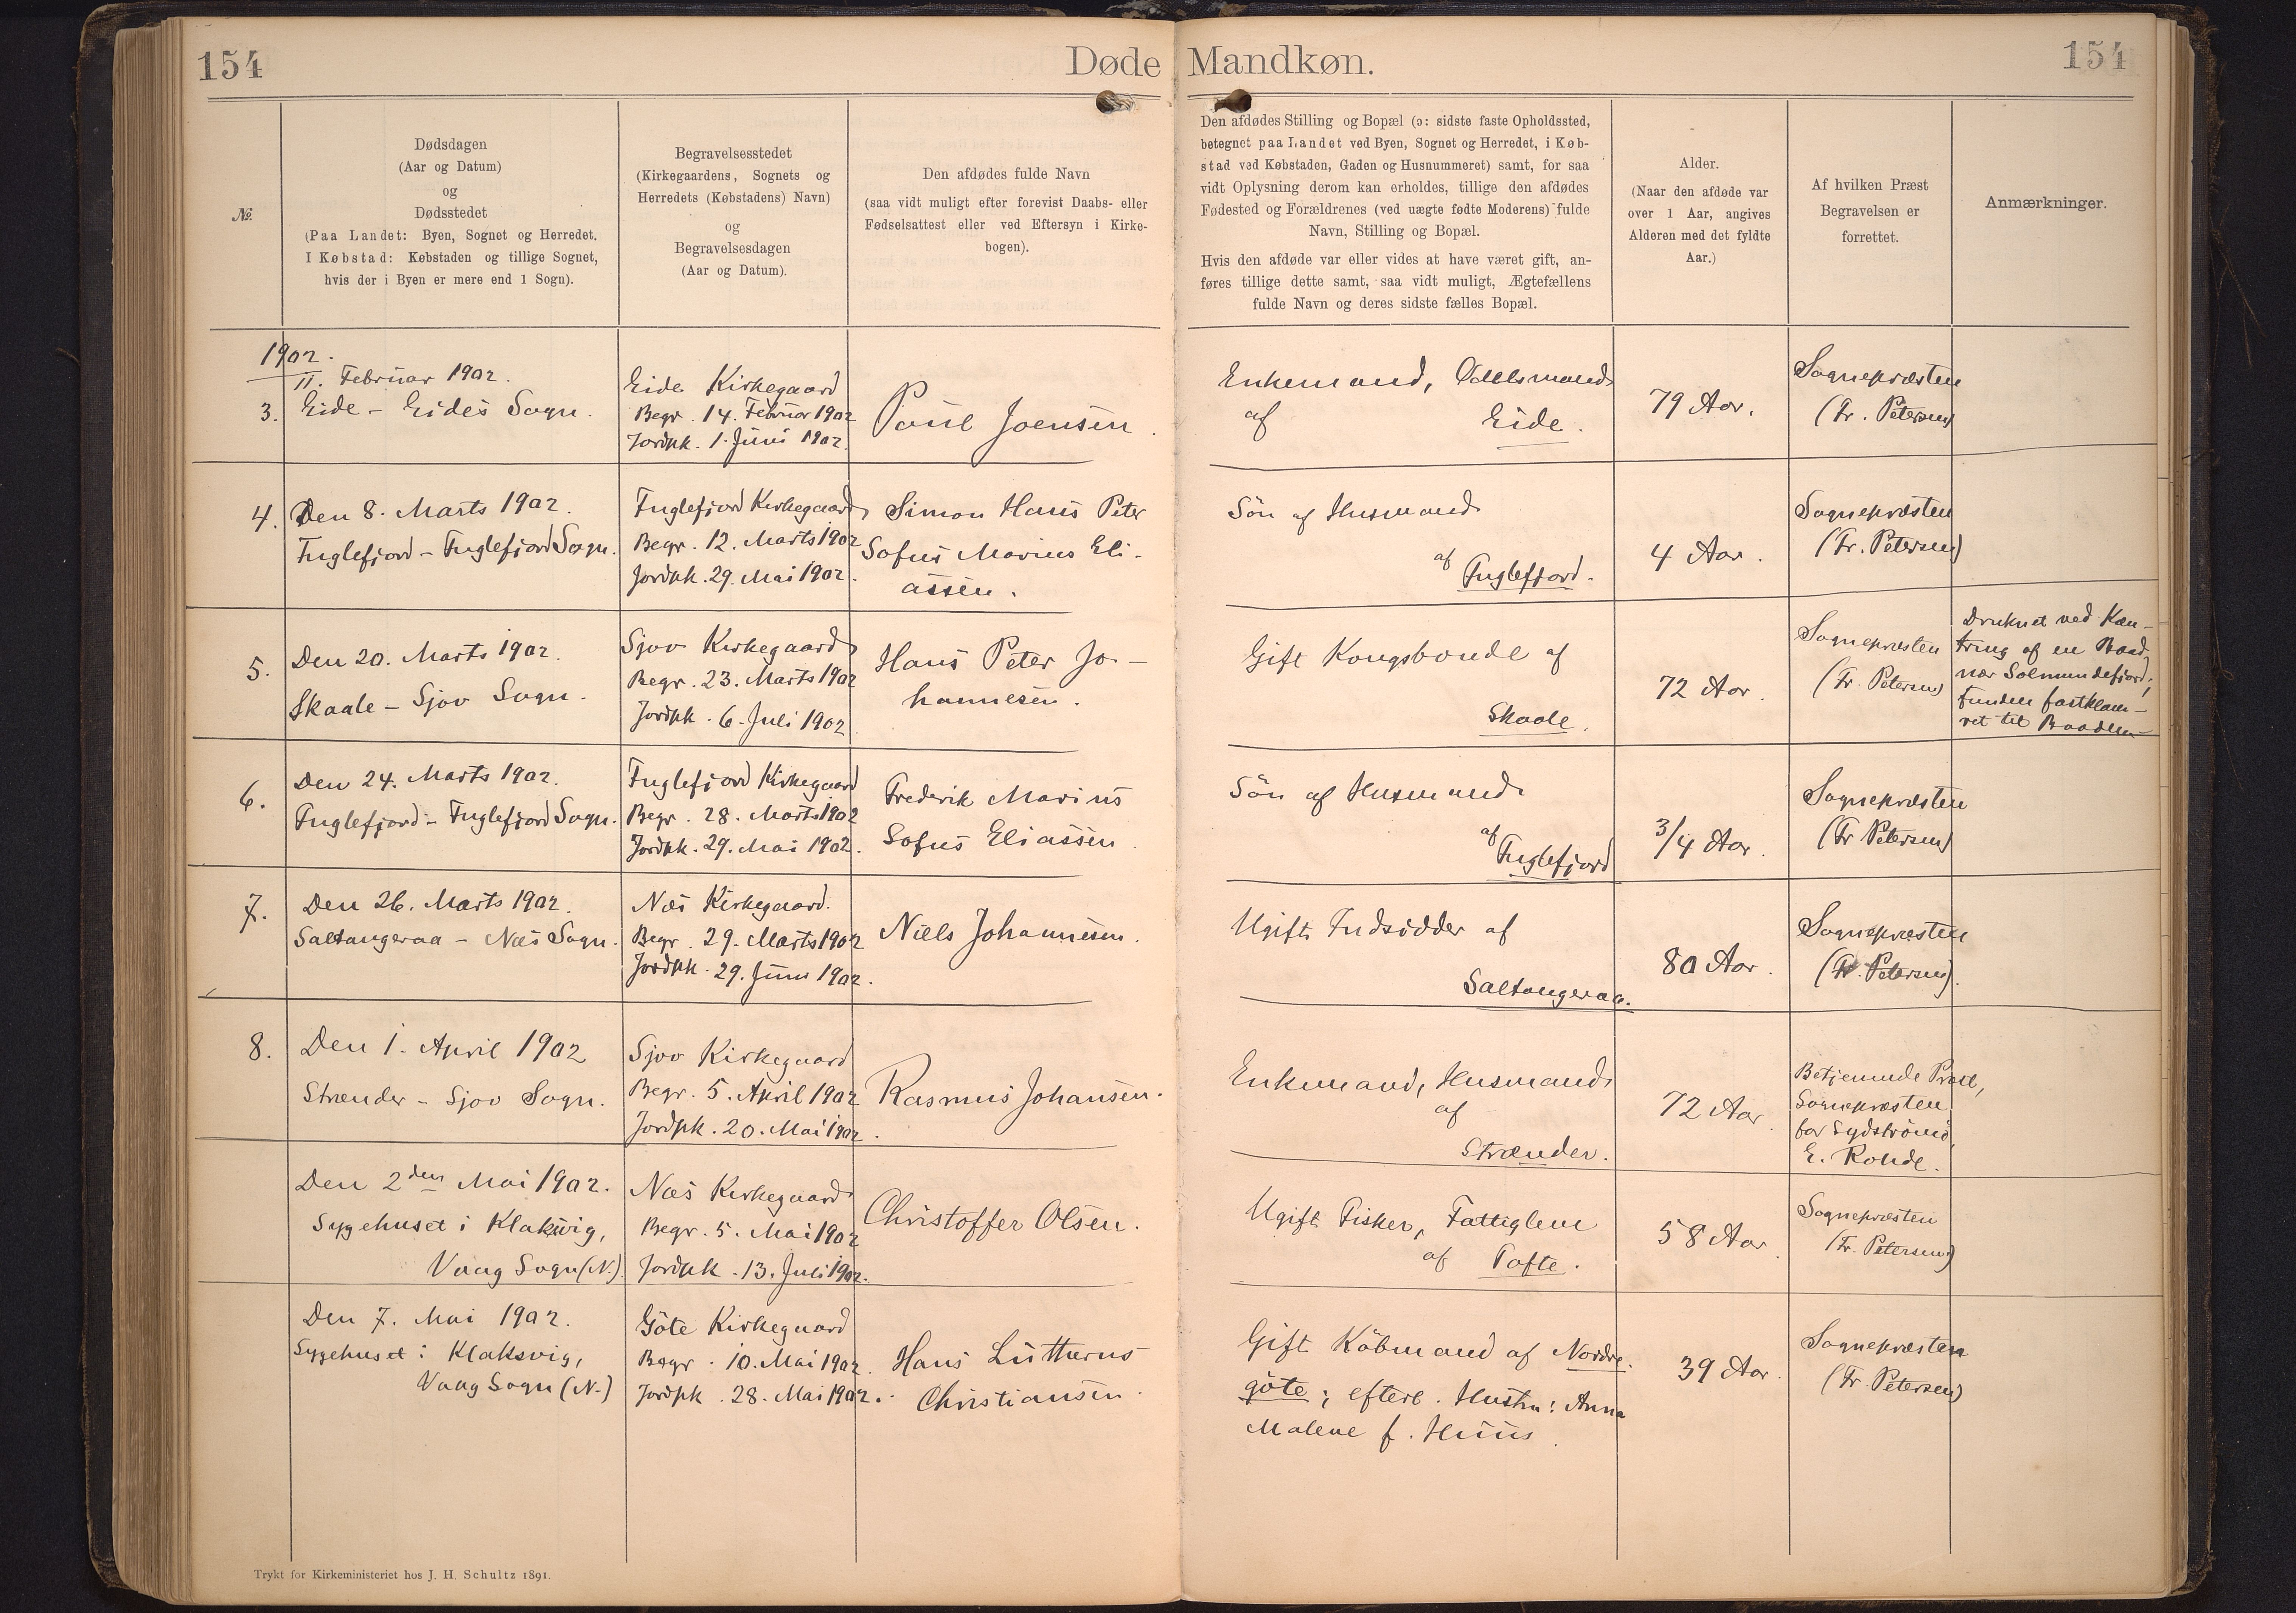 154
Døde Mandkøn.
154
№.
Dødsdagen
(Aar og Datum)
og
Dødsstedet
(Paa Landet: Byen, Sognet og Herredet.
I Købstad: Købstaden og tillige Sognet,
hvis der i Byen er mere end 1 Sogn).
Begravelsesstedet
(Kirkegaardens, Sognets og
Herredets (Købstadens) Navn)
og
Begravelsesdagen
(Aar og Datum).
Den afdødes fulde Navn
(saa vidt muligt efter forevist Daabs- eller
Fødselsattest eller ved Eftersyn i Kirke-
bogen).
Den afdødes Stilling og Bopæl (ɔ: sidste faste Opholdssted,
betegnet paa Landet ved Byen, Sognet og Herredet, i Køb-
stad ved Købstaden, Gaden og Husnummeret) samt, for saa
vidt Oplysning derom kan erholdes, tillige den afdødes
Fødested og Forældrenes (ved uægte fødte Moderens) fulde
Navn, Stilling og Bopæl.
Hvis den afdøde var eller vides at have været gift, an-
føres tillige dette samt, saa vidt muligt, Ægtefællens
fulde Navn og deres sidste fælles Bopæl.
Alder.
(Naar den afdøde var
over 1 Aar, angives
Alderen med det fyldte
Aar.)
Af hvilken Præst
Begravelsen er
forrettet.
Anmærkninger.
1902.
3.
11. Februar 1902.
Eide - Eides Sogn.
Eide Kirkegaard
Begr. 14. Februar 1902
Jordpk. 1. Juni 1902.
Poul Joensen.
Enkemand, Odelsmand
af Eide.
79 Aar.
Sognepræsten
(Fr. Petersen)
4.
Den 8. Marts 1902.
Fuglefjord - Fuglefjord Sogn.
Fuglefjord Kirkegaard
Begr. 12. Marts 1902
Jordpk. 29. Mai 1902.
Simon Hans Peter
Sofus Marius Eli-
assen.
Søn af Husmand
af Fuglefjord.
4 Aar.
Sognepræsten
(Fr. Petersen)
5.
Den 20. Marts 1902.
Skaale - Sjov Sogn.
Sjov Kirkegaard
Begr. 23. Marts 1902
Jordpk. 6. Juli 1902.
Hans Peter Jo-
hannesen.
Gift Kongsbonde af
Skaale.
72 Aar.
Sognepræsten
(Fr. Petersen)
Druknet ved Kæn-
tring af en Baad
nær Solmundefjord;
funden fastklam-
ret til Baaden
6.
Den 24. Marts 1902.
Fuglefjord - Fuglefjord Sogn.
Fuglefjord Kirkegaard
Begr. 28. Marts 1902
Jordpk. 29. Mai 1902.
Frederik Marius
Sofus Eliassen.
Søn af Husmand
af Fuglefjord
3/4 Aar.
Sognepræsten
(Fr Petersen)
7.
Den 26. Marts 1902.
Saltangeraa - Næs Sogn.
Næs Kirkegaard.
Begr. 29. Marts 1902
Jordpk. 29. Juni 1902.
Niels Johannesen.
Ugift Indsidder af
Saltangeraa.
80 Aar.
Sognepræsten
(Fr. Petersen).
8.
Den 1. April 1902
Strænder - Sjov Sogn.
Sjov Kirkegaard
Begr. 5. April 1902
Jordpk. 20. Mai 1902.
Rasmus Johansen.
Enkemand, Husmand
af
Strænder.
72 Aar.
Betjenende Præst,
Sognepræsten
for Sydstrømø,
E. Rohde.
Den 2den Mai 1902.
Sygehuset i Klaksvig,
Vaag Sogn (N.)
Næs Kirkegaard
Begr. 5. Mai 1902
Jordpk. 13. Juli 1902.
Christoffer Olsen.
Ugift Fisker, Fattiglem
af Tofte.
58 Aar.
Sognepræsten
(Fr. Petersen)
Den 7. Mai 1902.
Sygehuset i Klaksvig,
Vaag Sogn (N.)
Göte Kirkegaard
Begr. 10. Mai 1902.
Jordpk. 28. Mai 1902.
Hans Lutherus
Christiansen.
Gift Købmand af Nordre-
göte; efterl. Hustru: Anna
Malene f. Huus.
39 Aar.
Sognepræsten
(Fr. Petersen)
Trykt for Kirkeministeriet hos J. H. Schultz 1891.